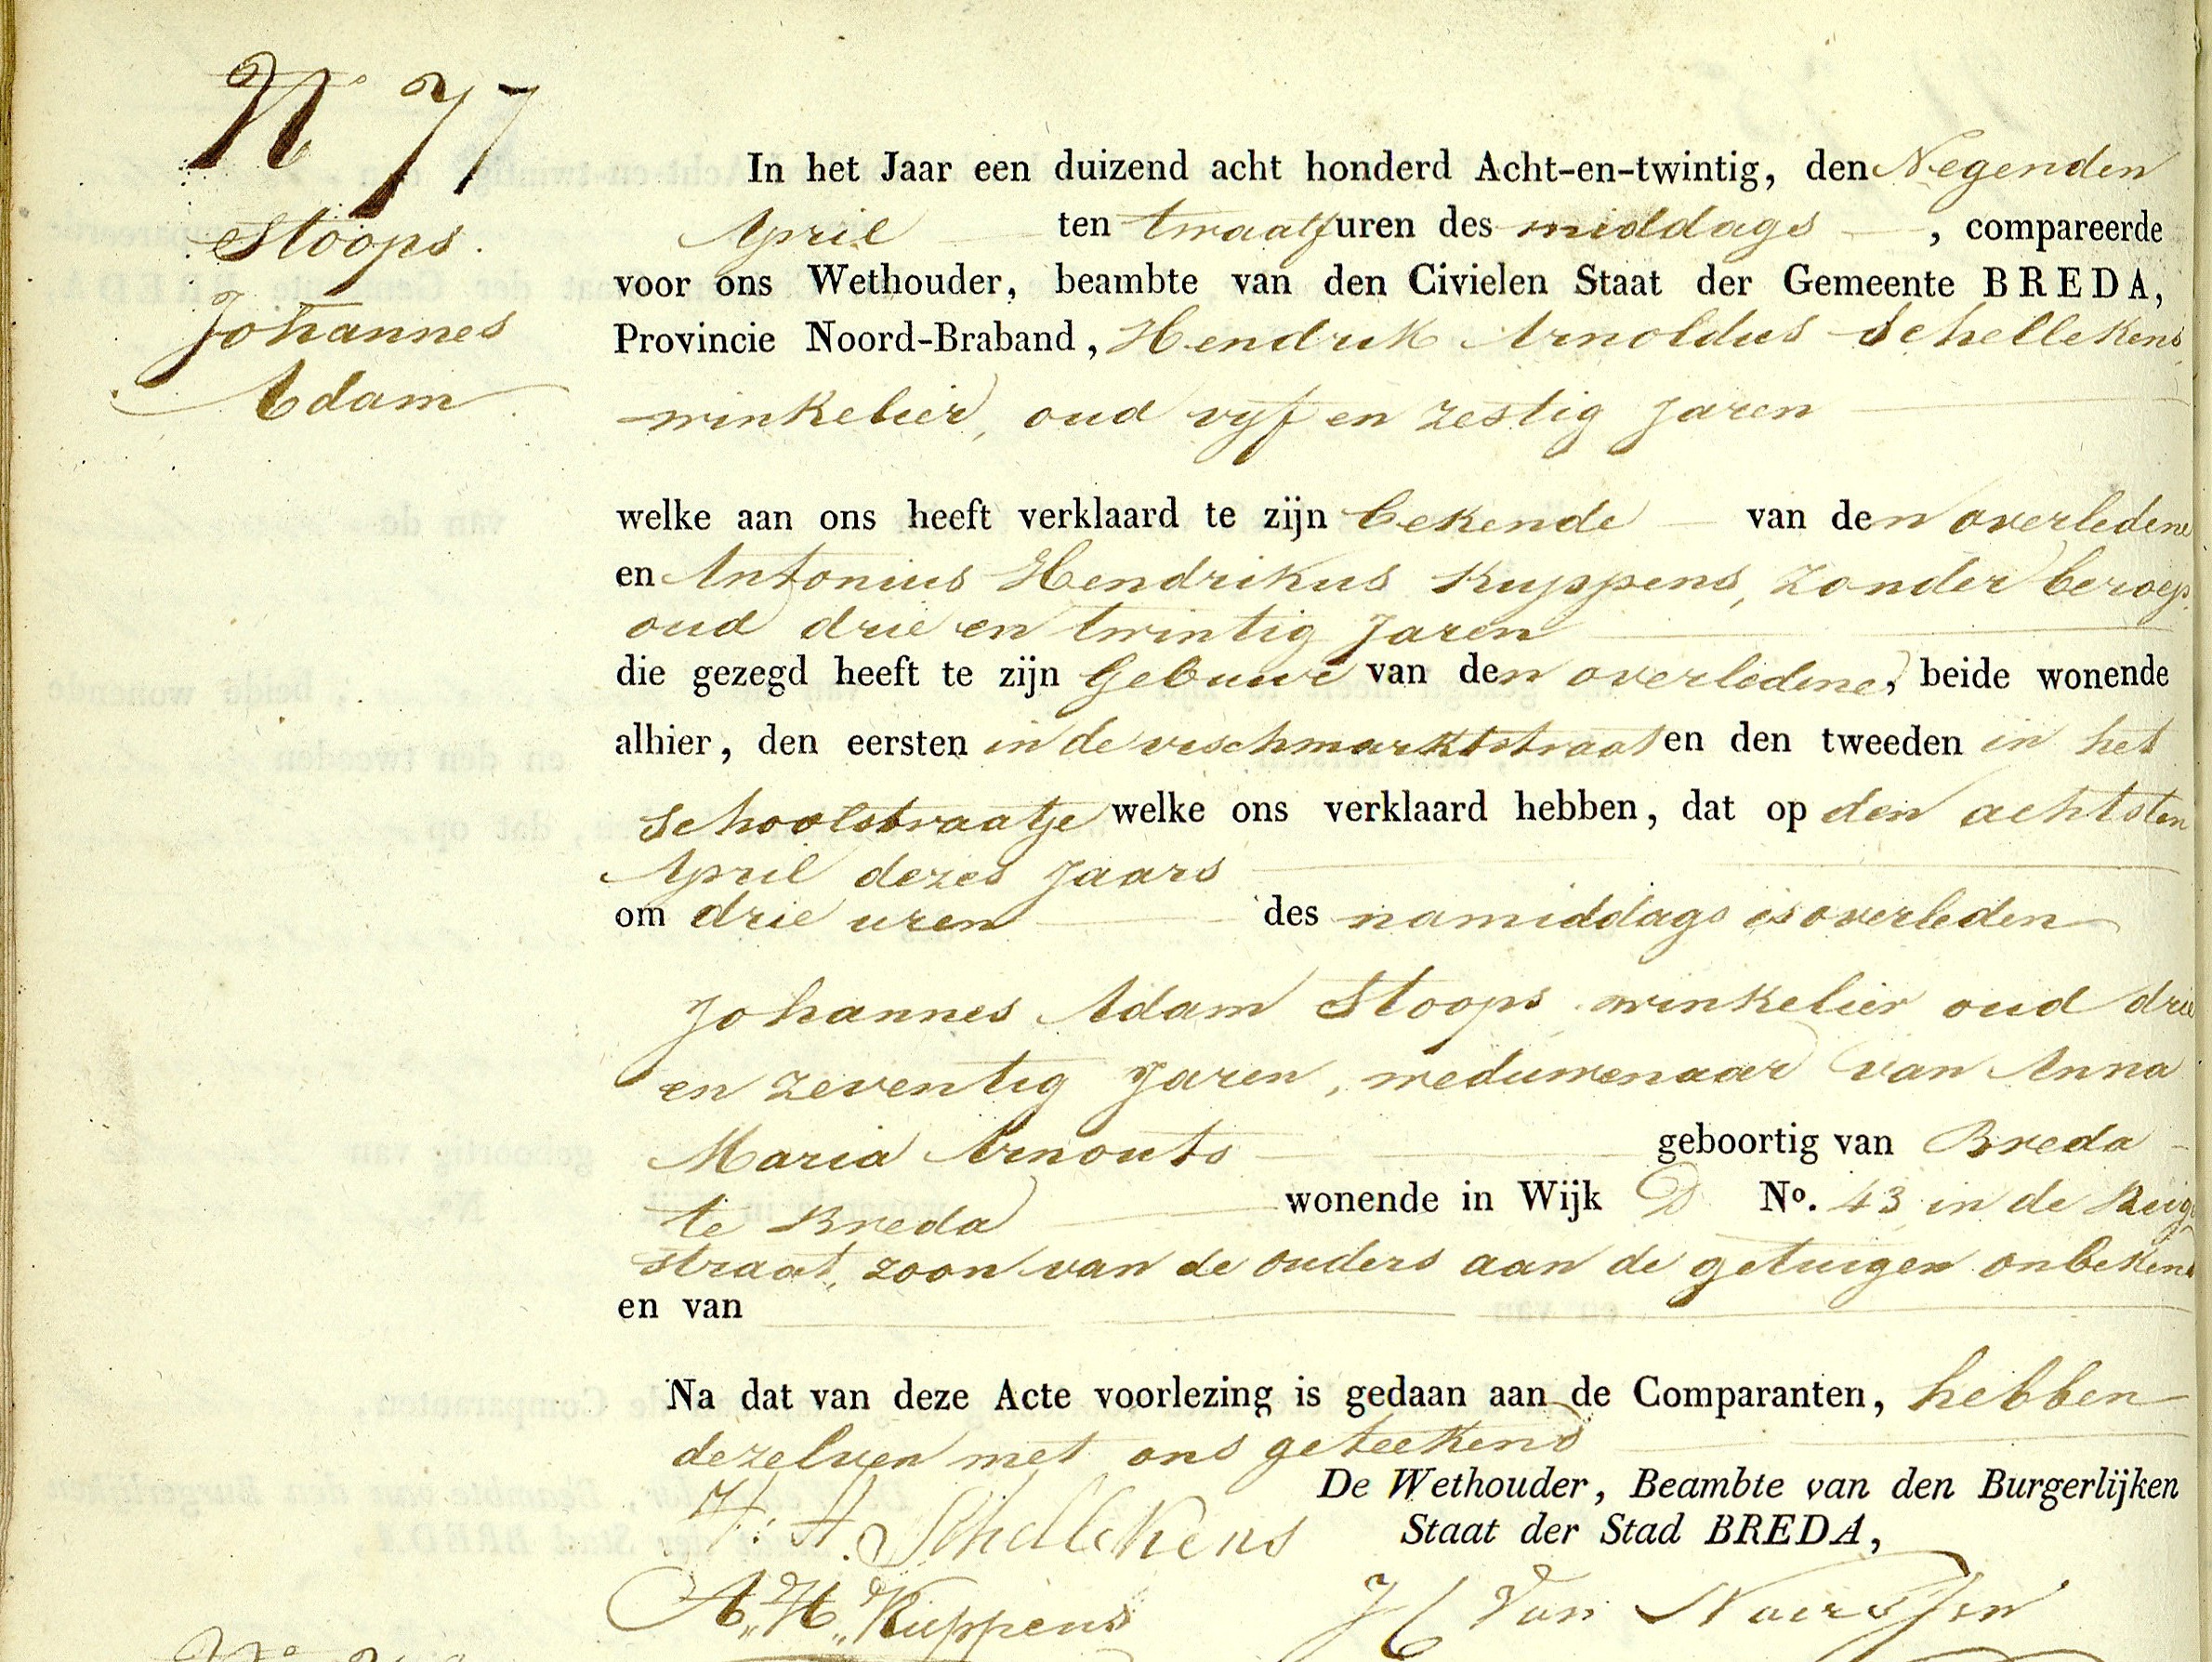 N 77
Stoops.
Johannes
Adam
In het Jaar een duizend acht honderd Acht-en-twintig, den Negenden
April ten twaalf uren des middags, compareerde
voor ons Wethouder, beambte van den Civielen Staat der Gemeente BREDA,
Provincie Noord-Braband, Hendrik Arnoldus Schellekens
winkelier, oud vijf en zestig Jaren
welke aan ons heeft verklaard te zijn bekende van den overledene
en Antonius Hendrikus Kuppens, zonder beroep,
oud drie en twintig Jaren
die gezegd heeft te zijn Gebuure van den overledene, beide wonende
alhier, den eersten in de vischmarktstraat en den tweeden in het
Schoolstraatje welke ons verklaard hebben, dat op den achtsten
April dezes Jaars
om drie uren des namiddags is overleden
Johannes Adam Stoops winkelier oud drie
en zeventig Jaren, weduwenaar van Anna
Maria Arnouts geboortig van Breda
te Breda wonende in Wijk D No. 43 in de
straat, zoon van de ouders aan de getuigen onbekend
en van
Na dat van deze Acte voorlezing is gedaan aan de Comparanten, hebben
dezelven met ons geteekend
De Wethouder, Beambte van den Burgerlijken
Staat der Stad BREDA,
H. A. Schellekens
A,, H,, Kuppens
Van